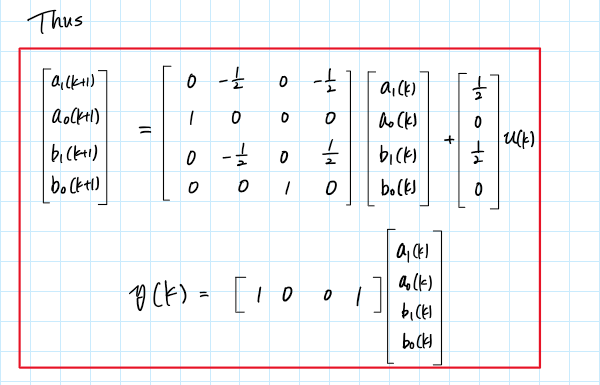 Thus
[a₁(k+1) a₀(k+1) b₁(k+1) b₀(k+1)]ᵀ = [0 -1/2 0 -1/2; 1 0 0 0; 0 -1/2 0 1/2; 0 0 1 0] [a₁(k) a₀(k) b₁(k) b₀(k)]ᵀ + [1/2 0 1/2 0]ᵀ u(k)
y(k) = [1 0 0 1] [a₁(k) a₀(k) b₁(k) b₀(k)]ᵀ